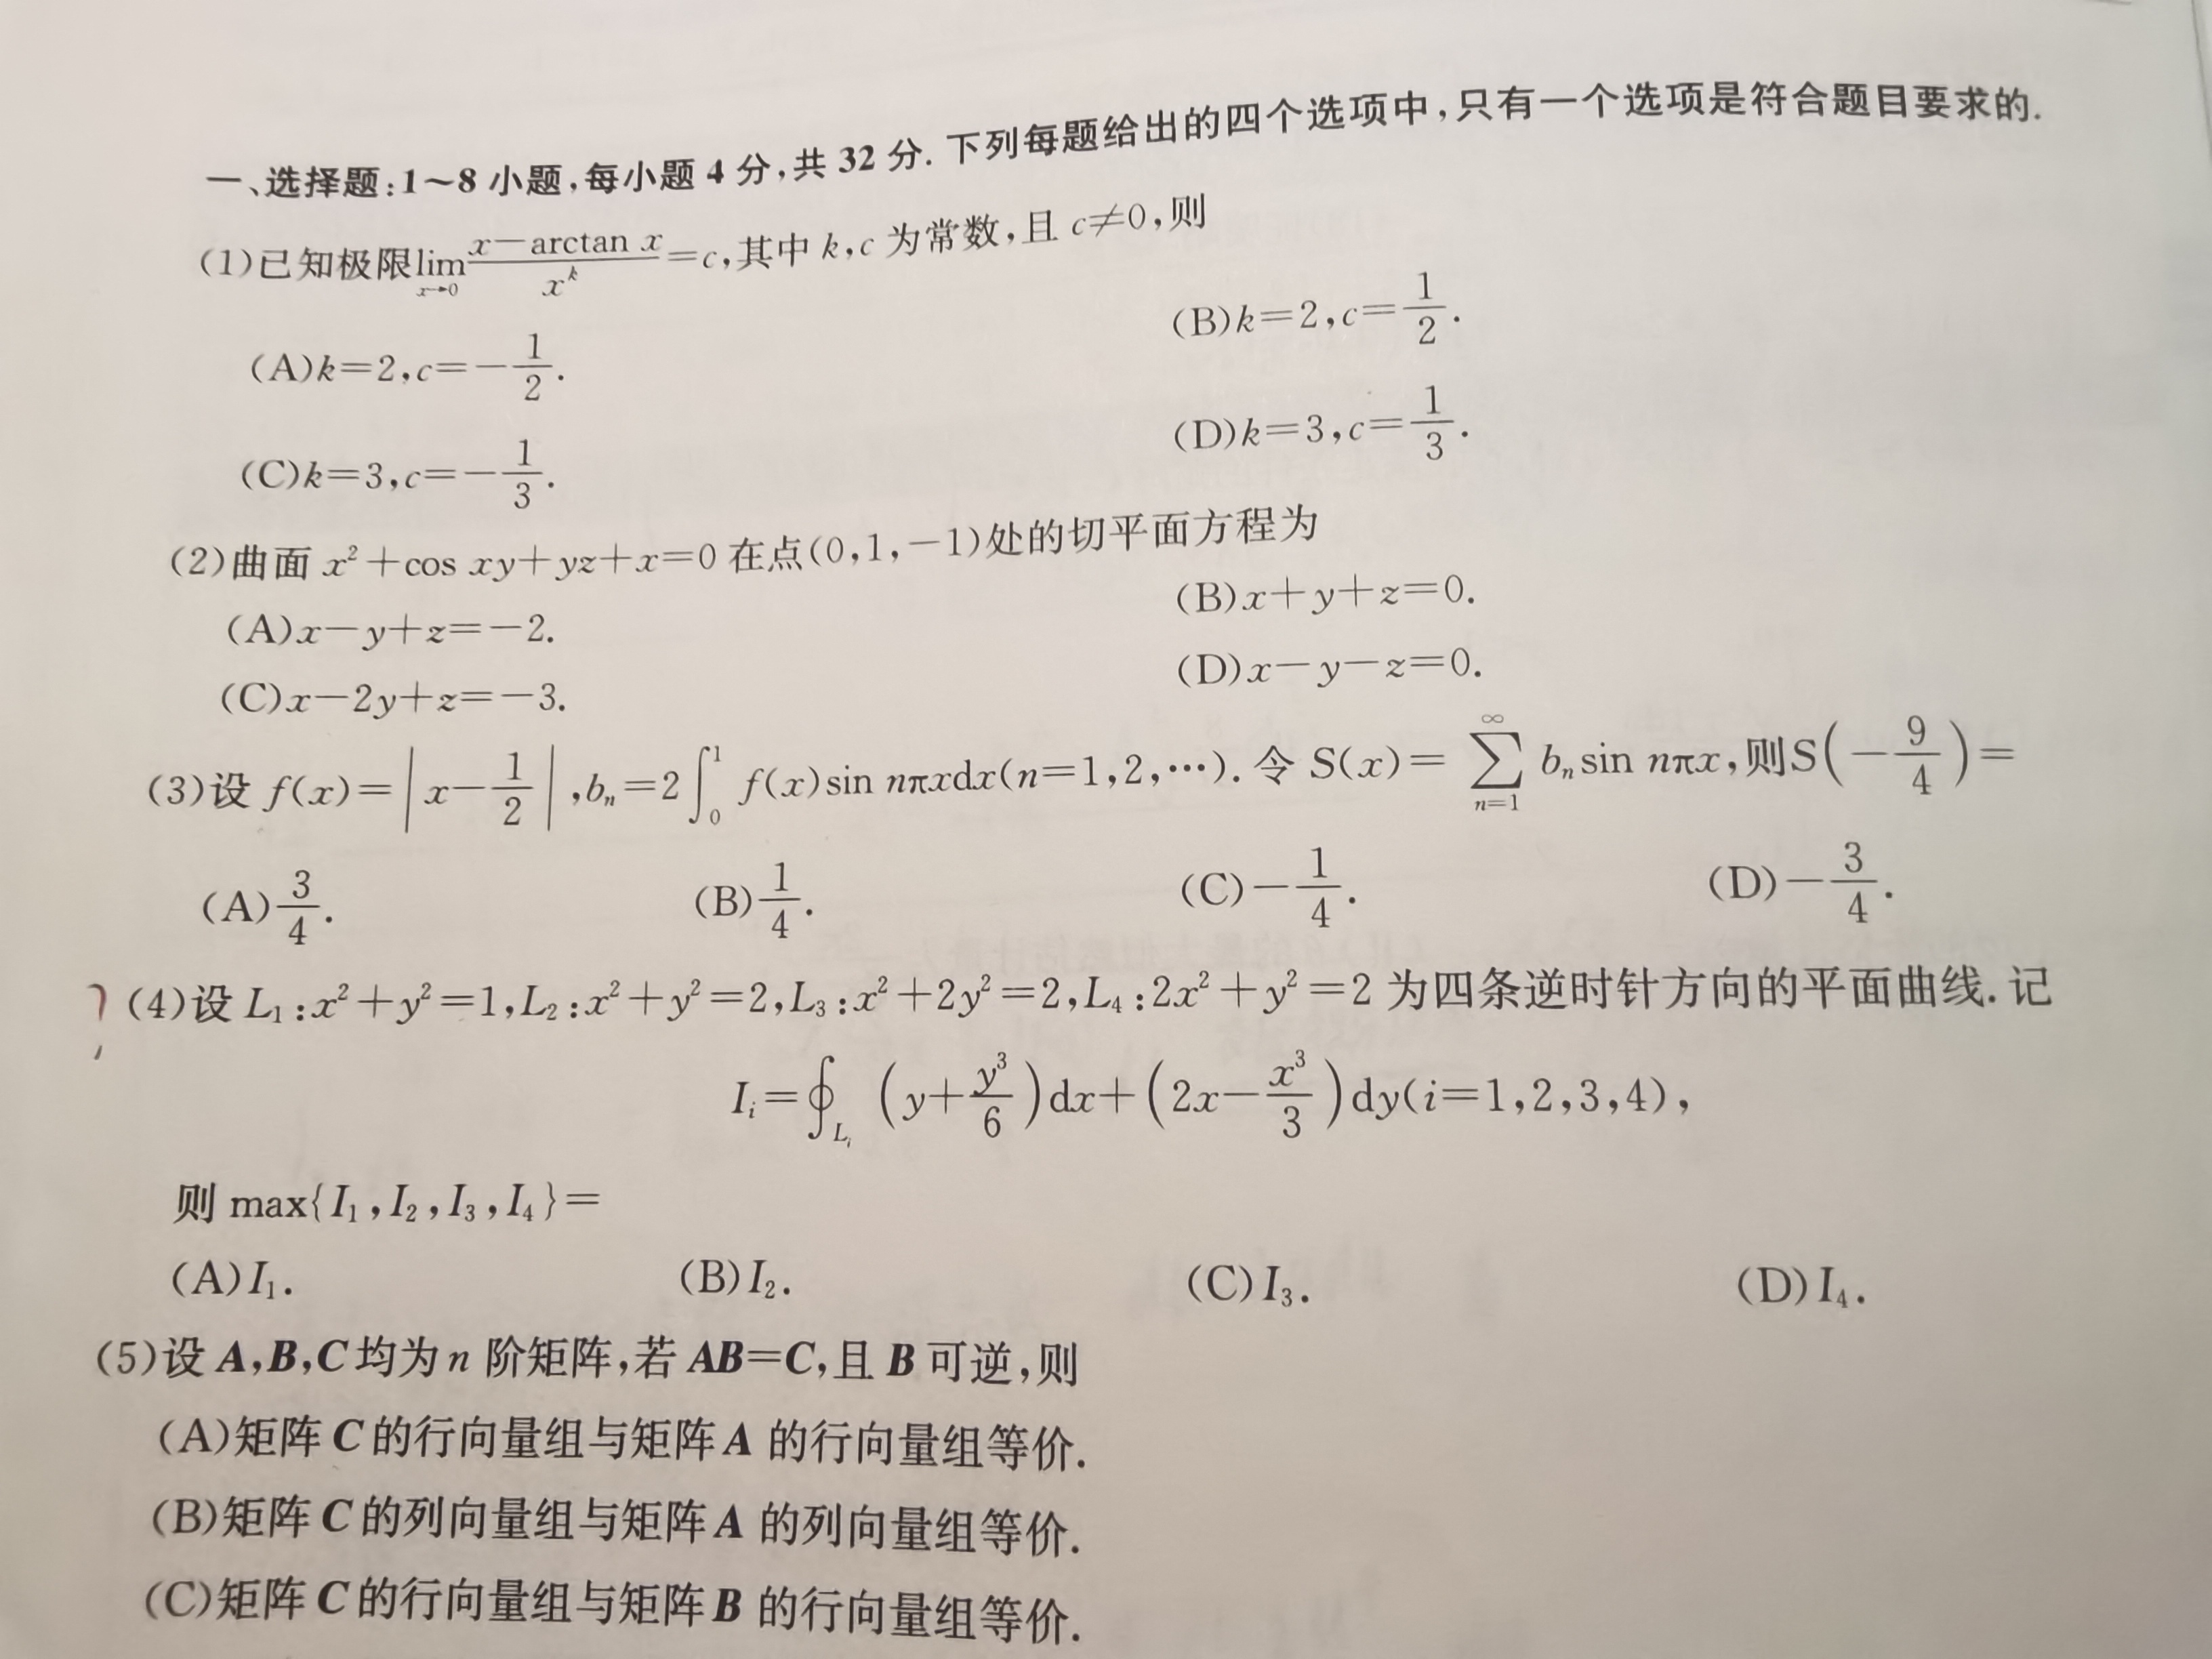 一、选择题:1~8小题,每小题4分,共32分.下列每题给出的四个选项中,只有一个选项是符合题目要求的.
(1)已知极限$\lim\limits_{x\to 0}\frac{x-\arctan x}{x^k}=c$,其中k,c为常数,且c≠0,则
(A)k=2,c=$-\frac{1}{2}$. (B)k=2,c=$\frac{1}{2}$.
(C)k=3,c=$-\frac{1}{3}$. (D)k=3,c=$\frac{1}{3}$.
(2)曲面$x^2+\cos xy+yz+x=0$在点(0,1,-1)处的切平面方程为
(A)x-y+z=-2. (B)x+y+z=0.
(C)x-2y+z=-3. (D)x-y-z=0.
(3)设$f(x)=\left|x-\frac{1}{2}\right|$,$b_n=2\int_0^1 f(x)\sin n\pi x dx(n=1,2,\cdots)$.令$S(x)=\sum\limits_{n=1}^{\infty}b_n\sin n\pi x$,则$S\left(-\frac{9}{4}\right)=$
(A)$\frac{3}{4}$. (B)$\frac{1}{4}$. (C)$-\frac{1}{4}$. (D)$-\frac{3}{4}$.
(4)设$L_1:x^2+y^2=1,L_2:x^2+y^2=2,L_3:x^2+2y^2=2,L_4:2x^2+y^2=2$为四条逆时针方向的平面曲线.记
$I_i=\oint_{L_i}\left(y+\frac{y^3}{6}\right)dx+\left(2x-\frac{x^3}{3}\right)dy(i=1,2,3,4),$
则$\max\{I_1,I_2,I_3,I_4\}=$
(A)$I_1$. (B)$I_2$. (C)$I_3$. (D)$I_4$.
(5)设A,B,C均为n阶矩阵,若AB=C,且B可逆,则
(A)矩阵C的行向量组与矩阵A的行向量组等价.
(B)矩阵C的列向量组与矩阵A的列向量组等价.
(C)矩阵C的行向量组与矩阵B的行向量组等价.